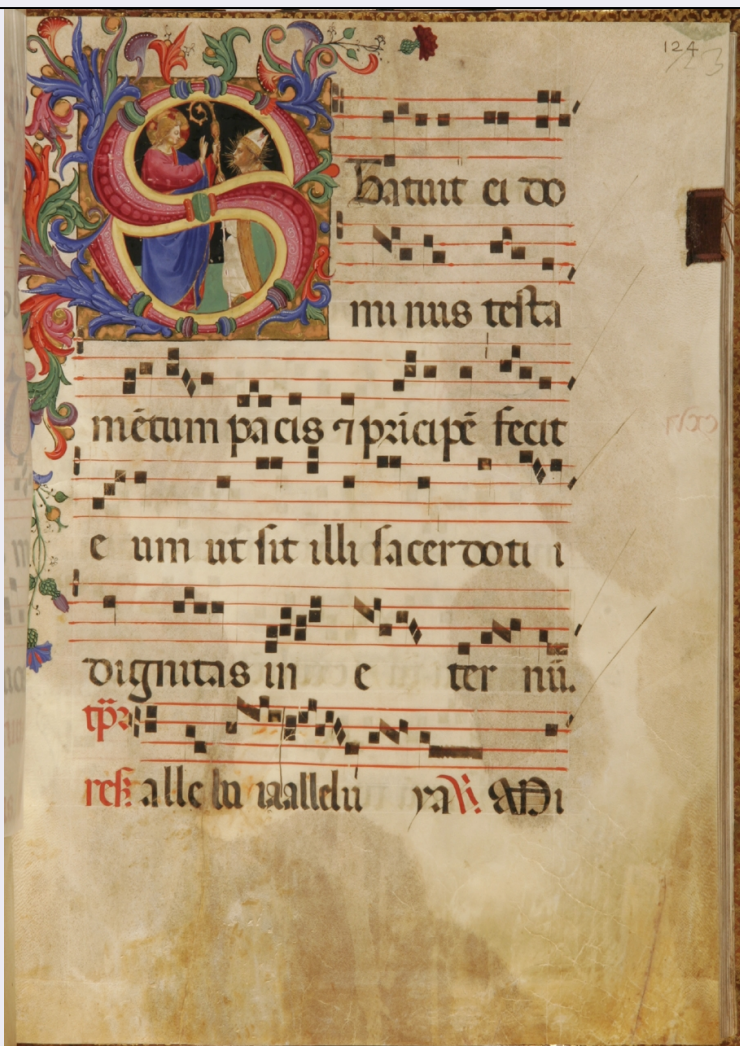 124
Statuit ei do
mi nus testa
mētum pa cis ⁊ prīcipē fecit
e um ut sit illi sa cer doti i
dignitas in e ter nū.
tp̄r
res. alle lu ya allelu ya ℣. Mi